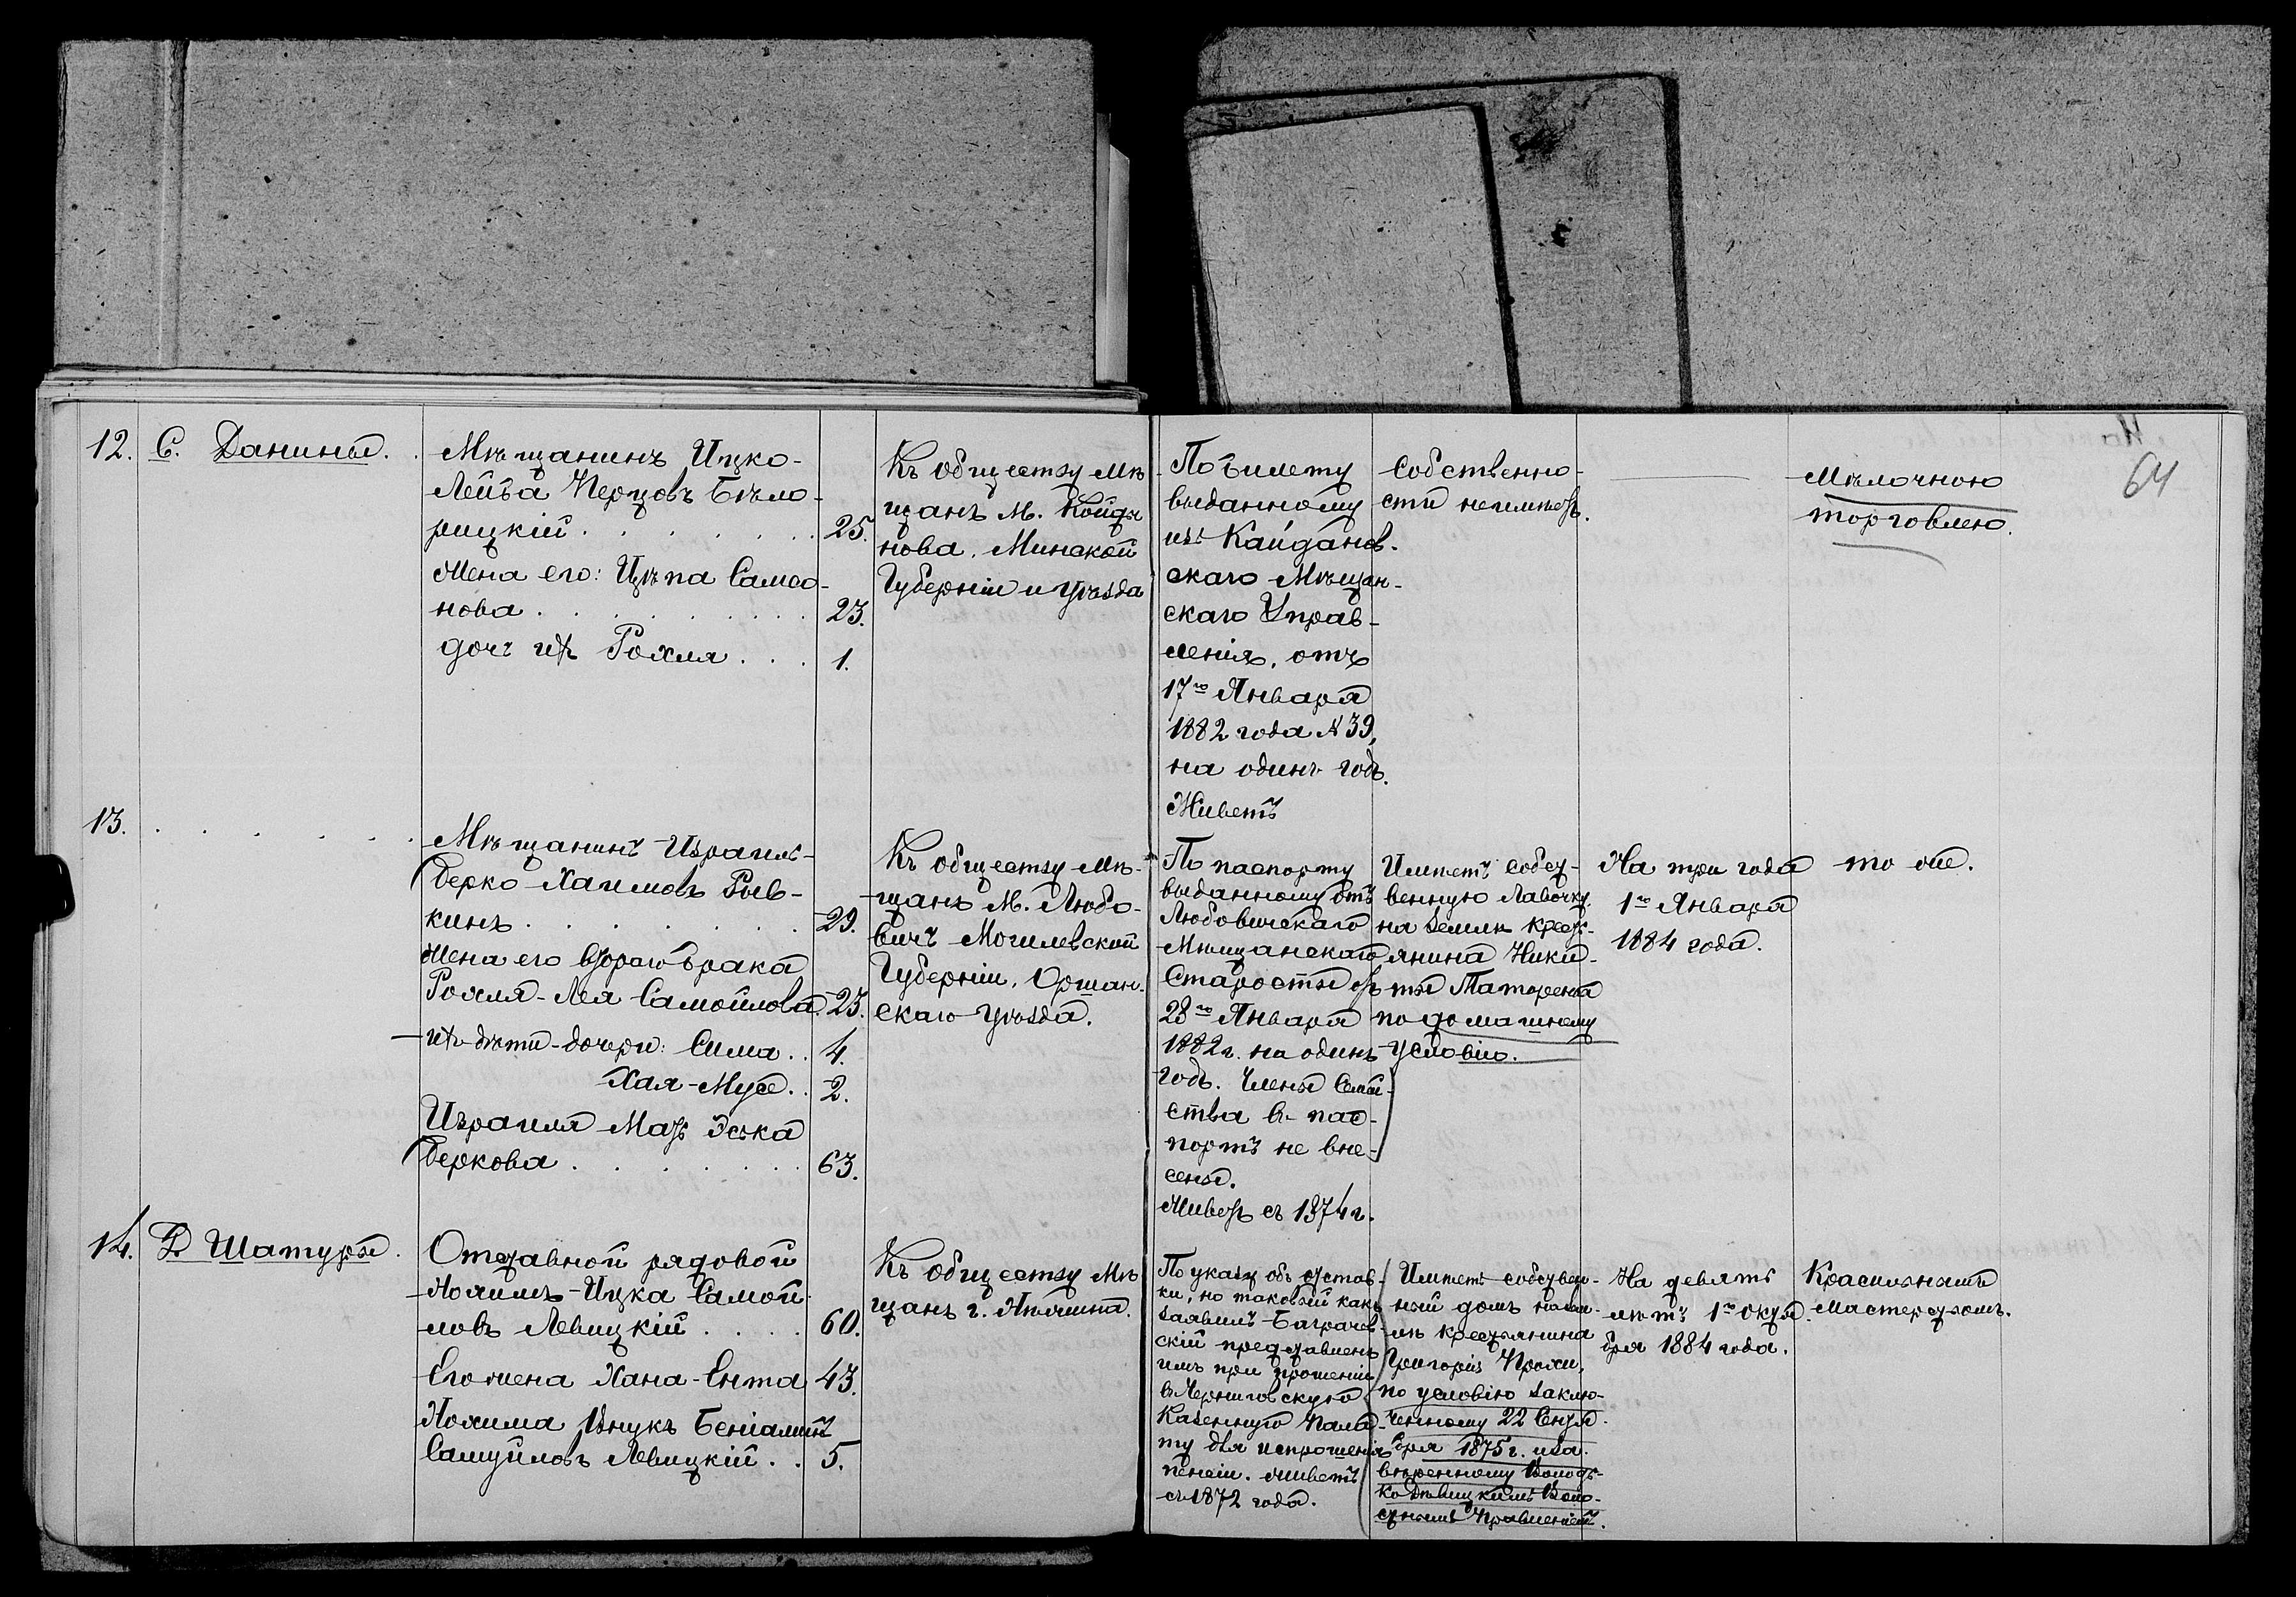 64
12. С. Данина.
Мѣщанинъ Ицко-
Лейба Перцовъ Бѣло-
рицкій . . . . . . . 25.
Жена его: Цѣпа Самсо-
нова . . . . . . . . 23.
дочь ихъ Рохля . . . 1.
Къ обществу мѣ-
щанъ м. Койда-
нова, Минской
Губерніи и уѣзда
По билету
выданному
изъ Кайданов-
скаго Мѣщан-
скаго Управ-
ленія, отъ
17го Января
1882 года № 39,
на одинъ годъ.
Живетъ
Собственно-
сти неимѣетъ.
Мѣлочною
торговлею.
13. . . . . .
Мѣщанинъ Израиль-
Берко Хаимовъ Рыв-
кинъ . . . . . . . 29.
Жена его втораго брака
Рохля-Лея Самойлова. 25.
ихъ дѣти-дочери: Сима . . 4.
Хая-Муся . . 2.
Израиля Мать Эська
Беркова . . . . . . . 63.
Къ обществу мѣ-
щанъ м. Любо-
вичъ Могилевской
Губерніи, Оршан-
скаго уѣзда.
По паспорту
выданному отъ
Любовичскаго
Мѣщанскаго
Старосты отъ
28го Января
1882 г. на одинъ
годъ. Члены Семей-
ства въ пас-
портъ не вне-
сены.
Живетъ съ 1874 г.
Имѣетъ собст-
венную лавочку
на землѣ крест-
янина Ники-
ты
по домашнему
условію.
На три года
1го Января
1884 года.
то же.
14. Д. Шатура.
Отставной рядовой
Нохимъ-Ицка Самой-
ловъ Левицкій . . . . 60.
Его жена Хана-Ента 43.
Нохима внукъ Беніаминъ
Самуйловъ Левицкій . . 5.
Къ обществу мѣ-
щанъ г.
По указу объ отстав-
ки, но таковый какъ
заявилъ
скій представленъ
имъ при прошеніи
въ Черниговскую
Казенную Пала-
ту для испрошенія
пенсіи. Живетъ
съ 1872 года.
Имѣетъ собствен-
ный домъ на зем-
лѣ крестьянина
Григорія
по условію заклю-
ченному 22 Сентя-
бря 1875 г. иза-
вѣренному Володь-
ко Дѣвицкимъ Воло-
стнымъ Правленіемъ.
На девять
лѣтъ 1го Октя-
бря 1884 года.
Красильнымъ
мастерствомъ.